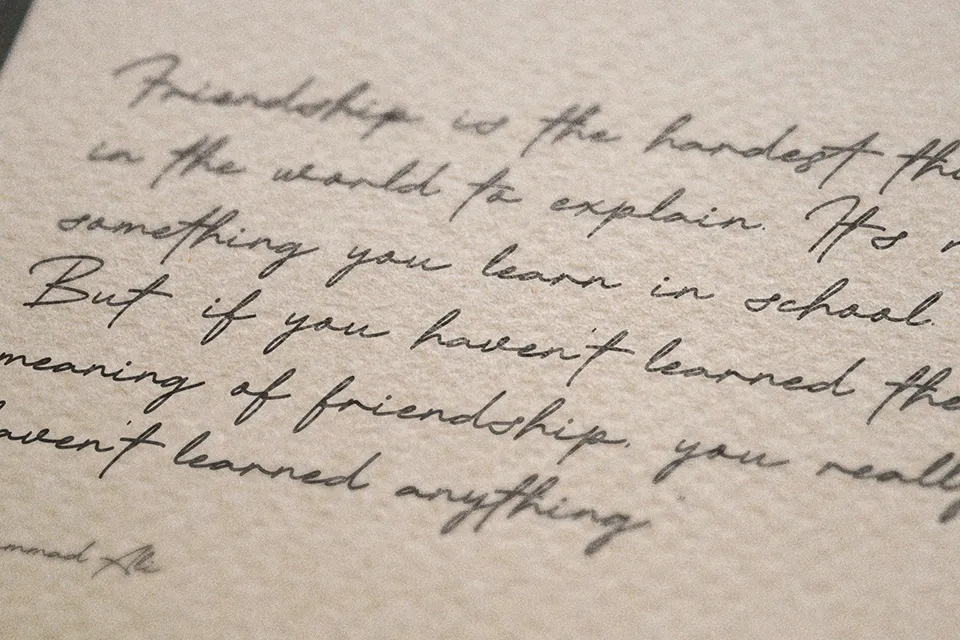 Friendship is the hardest th
in the world to explain. It's n
something you learn in school.
But if you haven't learned the
meaning of friendship, you really
aven't learned anything
mmad Ali